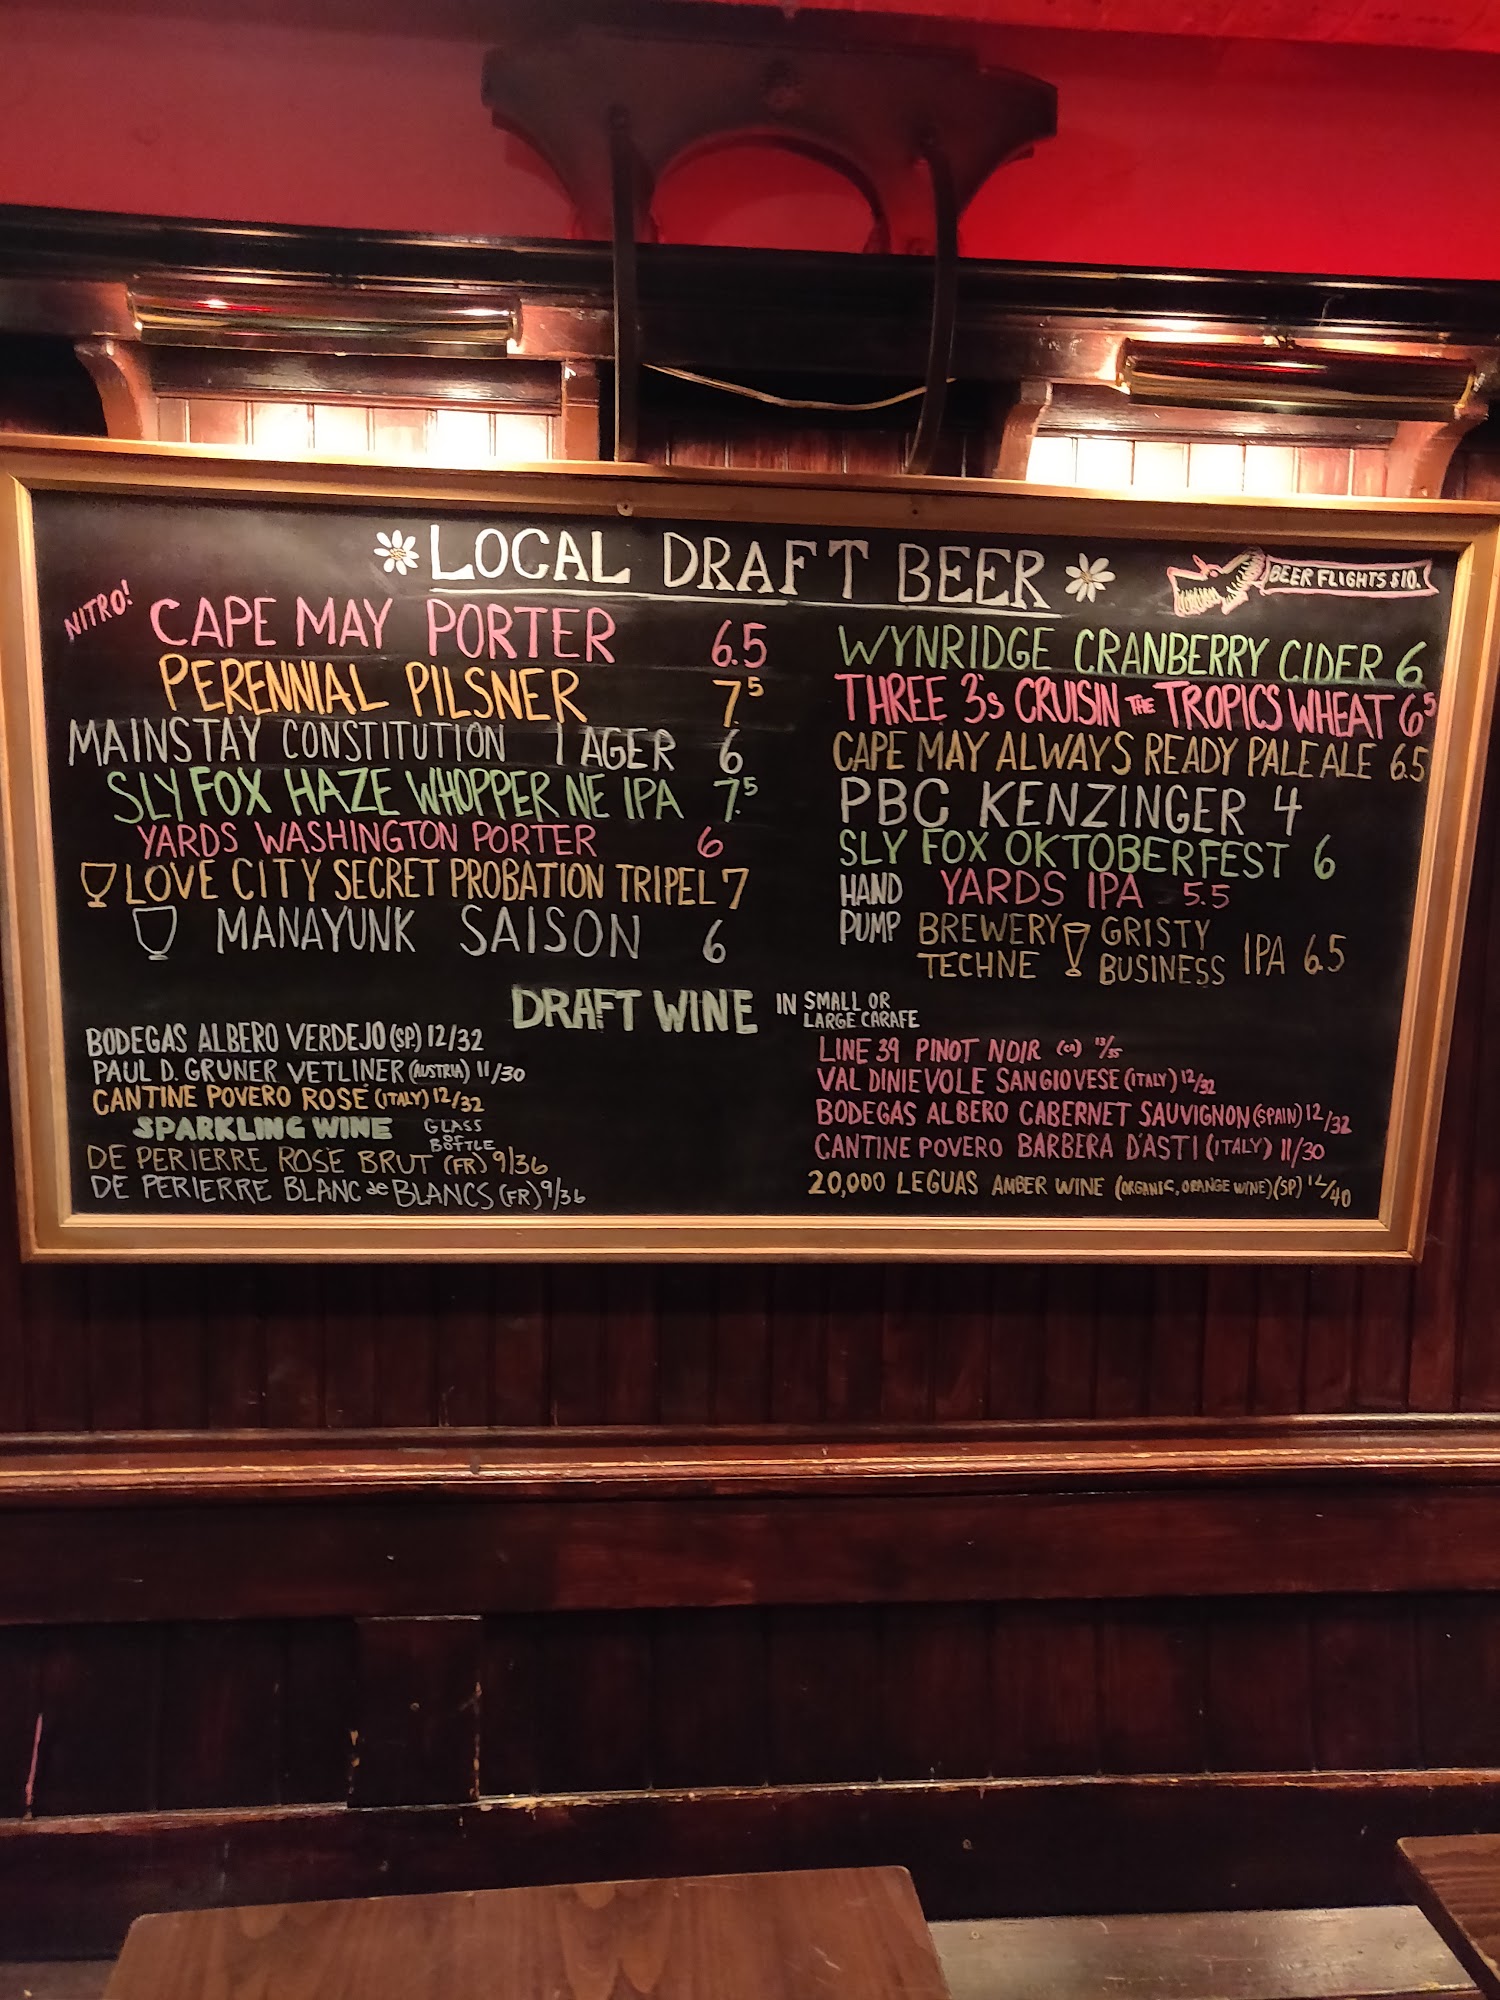 LOCAL DRAFT BEER
BEER FLIGHTS $10.
NITRO!
CAPE MAY PORTER 6.5
PERENNIAL PILSNER 7.5
MAINSTAY CONSTITUTION LAGER 6
SLY FOX HAZE WHOPPER NE IPA 7.5
YARDS WASHINGTON PORTER 6
LOVE CITY SECRET PROBATION TRIPEL 7
MANAYUNK SAISON 6
WYNRIDGE CRANBERRY CIDER 6
THREE 3's CRUISIN THE TROPICS WHEAT 6.5
CAPE MAY ALWAYS READY PALE ALE 6.5
PBC KENZINGER 4
SLY FOX OKTOBERFEST 6
HAND PUMP
YARDS IPA 5.5
BREWERY TECHNE GRISTY BUSINESS IPA 6.5
DRAFT WINE IN SMALL OR LARGE CARAFE
BODEGAS ALBERO VERDEJO (SP.) 12/32
PAUL D. GRUNER VETLINER (AUSTRIA) 11/30
CANTINE POVERO ROSÉ (ITALY) 12/32
SPARKLING WINE GLASS OR BOTTLE
DE PERIERRE ROSE BRUT (FR) 9/36
DE PERIERRE BLANC de BLANCS (FR) 9/36
LINE 39 PINOT NOIR (CA) 13/35
VAL DINIEVOLE SANGIOVESE (ITALY) 12/32
BODEGAS ALBERO CABERNET SAUVIGNON (SPAIN) 12/32
CANTINE POVERO BARBERA D'ASTI (ITALY) 11/30
20,000 LEGUAS AMBER WINE (ORGANIC, ORANGE WINE) (SP) /40